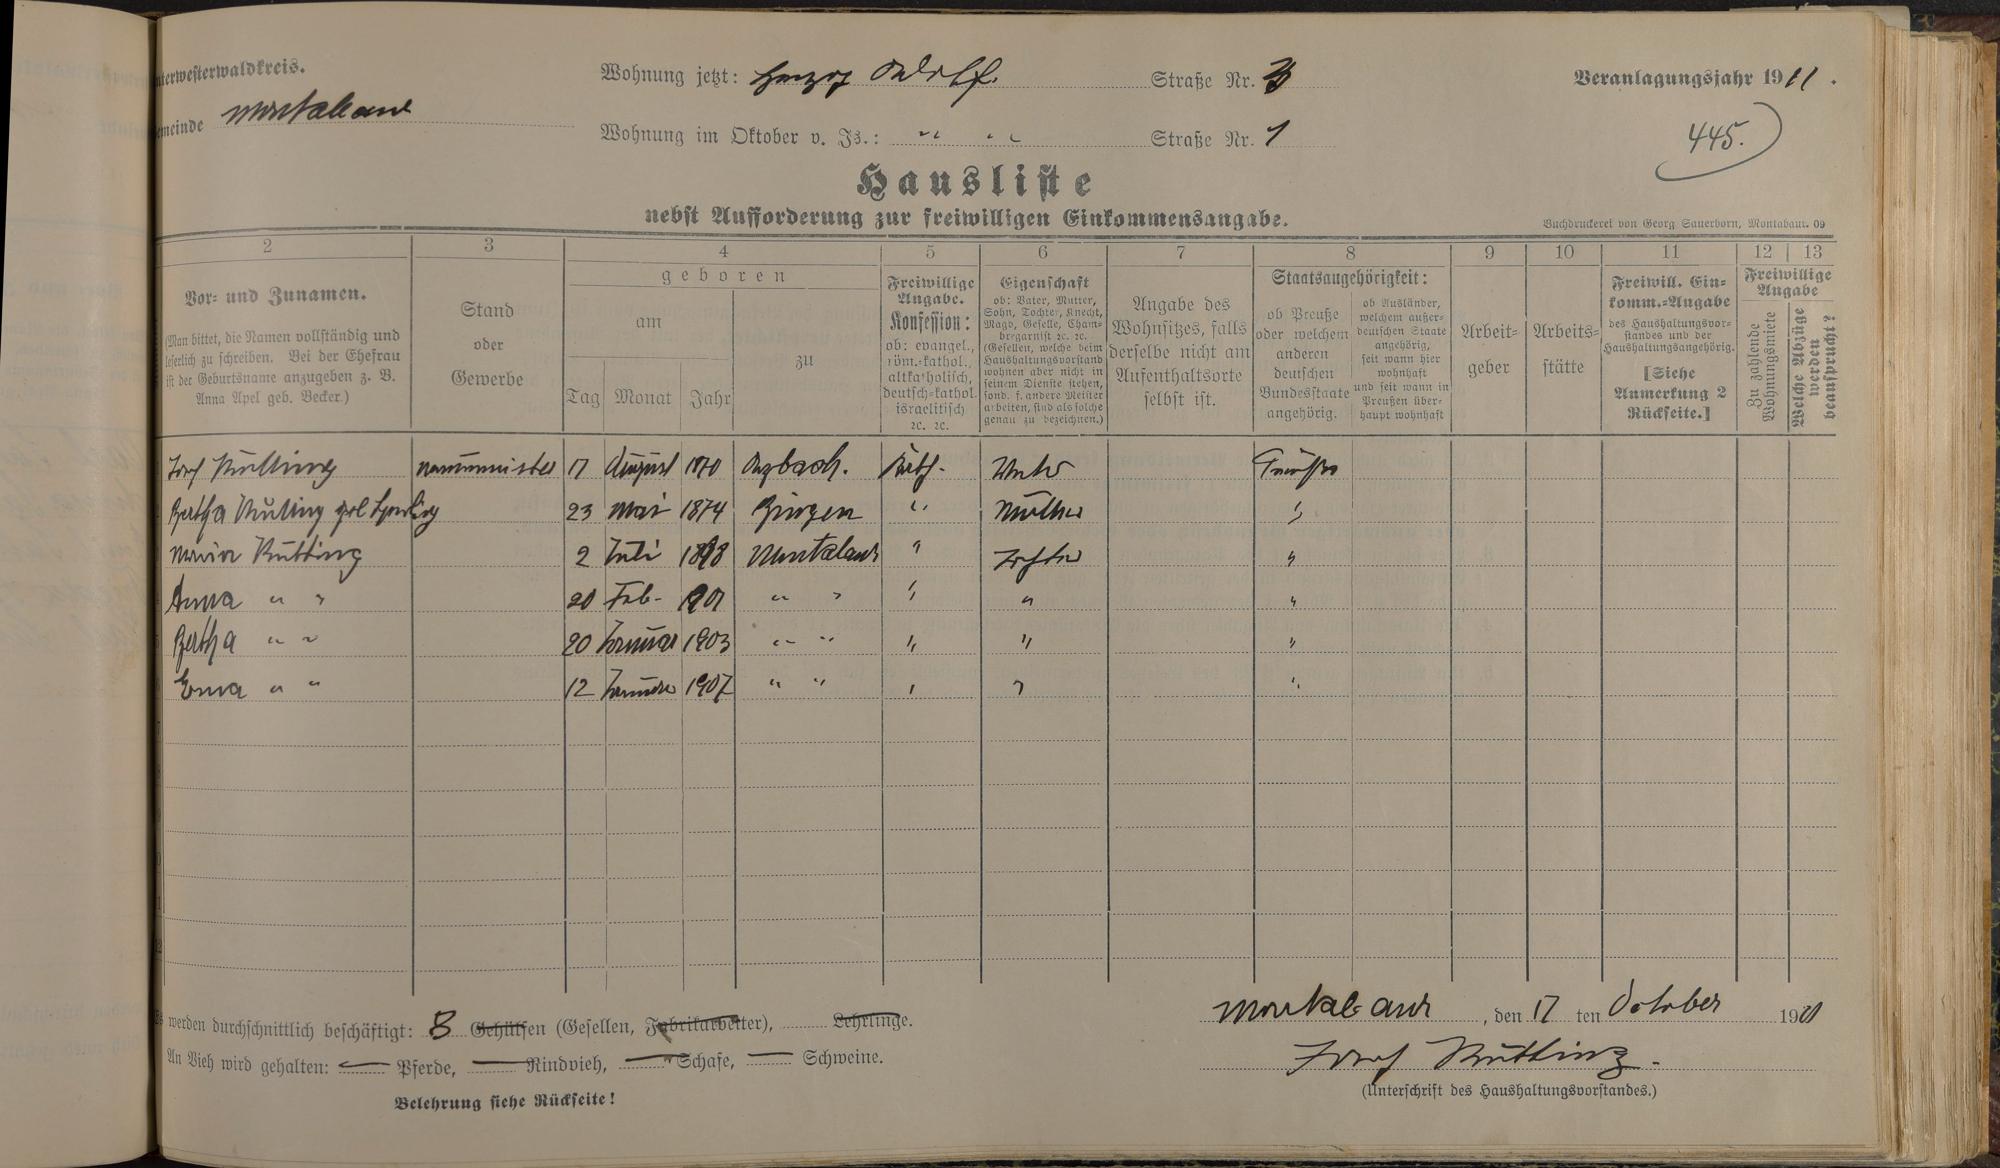 nterwesterwaldkreis.
emeinde Montabaur
Wohnung jetzt: Herzog Adolf. Straße Nr. 3
Wohnung im Oktober v. Js.: " " Straße Nr. 1
Veranlagungsjahr 1911.
445.
Hausliste
nebst Aufforderung zur freiwilligen Einkommensangabe.
Buchdruckerei von Georg Sauerborn, Montabaur. 09
2 3 4 5 6 7 8 9 10 11 12 13
Vor- und Zunamen.
(Man bittet, die Namen vollständig und
leserlich zu schreiben. Bei der Ehefrau
ist der Geburtsname anzugeben z. B.
Anna Apel geb. Becker.)
Stand
oder
Gewerbe
geboren
am
Tag Monat Jahr
zu
Freiwillige
Angabe.
Konfession:
ob: evangel.,
röm.-kathol.,
altkatholisch,
deutsch-kathol.
israelitisch
ꝛc. ꝛc.
Eigenschaft
ob: Vater, Mutter,
Sohn, Tochter, Knecht,
Magd, Geselle, Cham-
bregarnist ꝛc. ꝛc.
(Gesellen, welche beim
Haushaltungsvorstand
wohnen aber nicht in
seinem Dienste stehen,
sond. f. andere Meister
arbeiten, sind als solche
genau zu bezeichnen.)
Angabe des
Wohnsitzes, falls
derselbe nicht am
Aufenthaltsorte
selbst ist.
Staatsangehörigkeit:
ob Preuße
oder welchem
anderen
deutschen
Bundesstaate
angehörig.
ob Ausländer,
welchem außer-
deutschen Staate
angehörig,
seit wann hier
wohnhaft
und seit wann in
Preußen über-
haupt wohnhaft
Arbeit-
geber
Arbeits-
stätte
Freiwill. Ein-
komm.-Angabe
des Haushaltungsvor-
standes und der
Haushaltungsangehörig.
[Siehe
Anmerkung 2
Rückseite.]
Freiwillige
Angabe
Zu zahlende
Wohnungsmiete
Welche Abzüge
werden
beansprucht?
Josef Kütting 17 August 1870 Kath. Vater Preuße
Bertha Kütting geb. 23 Mai 1874 Bingen " Mutter "
Maria Kütting 2 Juli 1898 Montabaur " Tochter "
Anna " " 20 Feb. 1901 " " " " "
Bertha " " 20 Januar 1903 " " " " "
Erna " " 12 Januar 1907 " " " " "
werden durchschnittlich beschäftigt: 8 Gehülfen (Gesellen, Fabrikarbeiter), Lehrlinge.
An Vieh wird gehalten: — Pferde, — Rindvieh, — Schafe, — Schweine.
Belehrung siehe Rückseite!
Montabaur, den 17 ten October 19
Josef Kütting.
(Unterschrift des Haushaltungsvorstandes.)